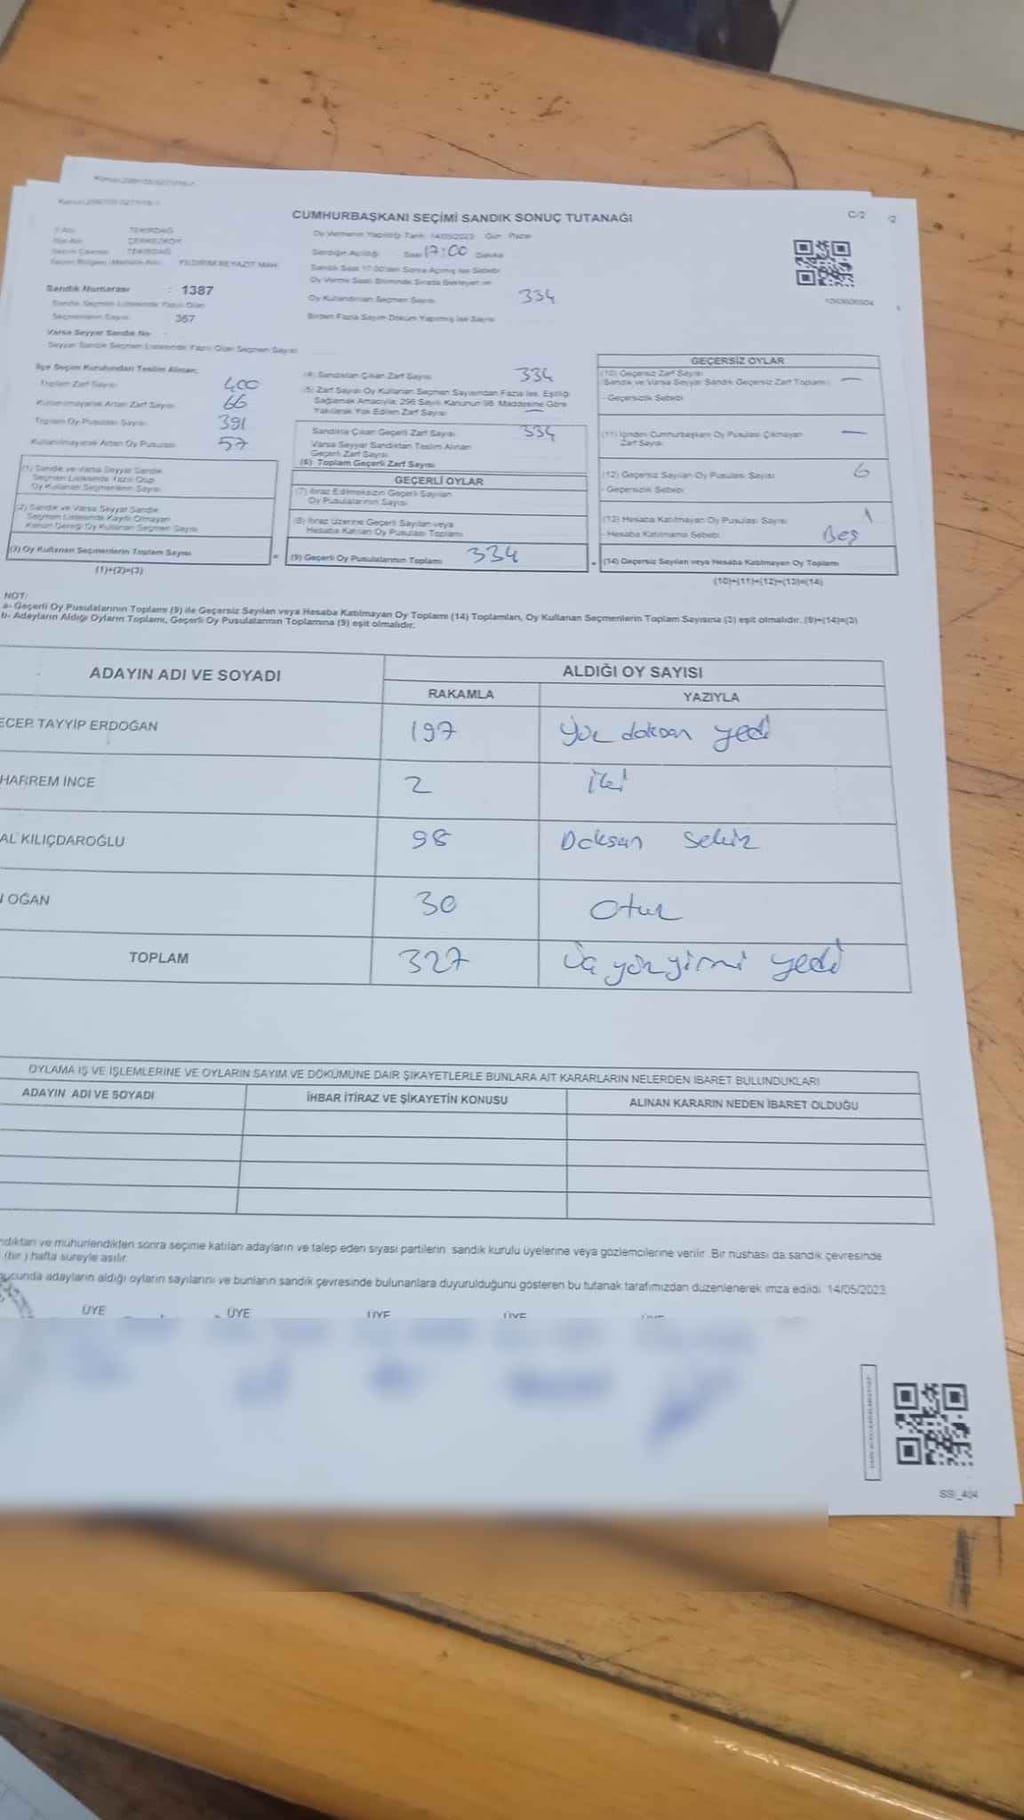 CUMHURBAŞKANI SEÇİMİ SANDIK SONUÇ TUTANAĞI
C/2
/2
Oy Vermenin Yapıldığı Tarih 14/05/2023 Gün Pazar
TEKİRDAĞ
ÇERKEZKÖY
TEKİRDAĞ
YILDIRIM BEYAZIT MAH.
Sandığın Açıldığı Saat 17:00 Dakika
Sandık Numarası : 1387
Sandık Seçmen Listesinde Yazılı Olan
Seçmenlerin Sayısı 367
Varsa Seyyar Sandık No
Seyyar Sandık Seçmen Listesinde Yazılı Olan Seçmen Sayısı
Sandık Saat 17:00'den Sonra Açılmış İse Sebebi
Oy Kullandırılan Seçmen Sayısı 334
Birden Fazla Sayım Döküm Yapılmış İse Sayısı
İlçe Seçim Kurulundan Teslim Alınan;
Toplam Zarf Sayısı 400
Kullanılmayarak Artan Zarf Sayısı 66
Toplam Oy Pusulası Sayısı 391
Kullanılmayarak Artan Oy Pusulası 57
(1) Sandık ve Varsa Seyyar Sandık
Seçmen Listesinde Yazılı Olup
Oy Kullanan Seçmenlerin Sayısı
(2) Sandık ve Varsa Seyyar Sandık
Seçmen Listesinde Kayıtlı Olmayan
Kanun Gereği Oy Kullanan Seçmen Sayısı
(3) Oy Kullanan Seçmenlerin Toplam Sayısı
(1)+(2)=(3)
(4) Sandıktan Çıkan Zarf Sayısı 334
(5) Zarf Sayısı Oy Kullanan Seçmen Sayısından Fazla ise, Eşitliği
Sağlamak Amacıyla, 298 Sayılı Kanunun 98. Maddesine Göre
Yakılarak Yok Edilen Zarf Sayısı —
Sandıkta Çıkan Geçerli Zarf Sayısı 334
Varsa Seyyar Sandıktan Teslim Alınan
Geçerli Zarf Sayısı
(6) Toplam Geçerli Zarf Sayısı
GEÇERLİ OYLAR
(7) İtiraz Edilmeksizin Geçerli Sayılan
Oy Pusulalarının Sayısı
(8) İtiraz Üzerine Geçerli Sayılan veya
Hesaba Katılan Oy Pusulası Toplamı
(9) Geçerli Oy Pusulalarının Toplamı 334
GEÇERSİZ OYLAR
(10) Geçersiz Zarf Sayısı
(Sandık ve Varsa Seyyar Sandık Geçersiz Zarf Toplamı) —
- Geçersizlik Sebebi
(11) İçinden Cumhurbaşkanı Oy Pusulası Çıkmayan
Zarf Sayısı —
(12) Geçersiz Sayılan Oy Pusulası Sayısı 6
- Geçersizlik Sebebi
(13) Hesaba Katılmayan Oy Pusulası Sayısı 1
- Hesaba Katılmama Sebebi Boş
(14) Geçersiz Sayılan veya Hesaba Katılmayan Oy Toplamı
(10)+(11)+(12)+(13)=(14)
NOT:
a- Geçerli Oy Pusulalarının Toplamı (9) ile Geçersiz Sayılan veya Hesaba Katılmayan Oy Toplamı (14) Toplamları, Oy Kullanan Seçmenlerin Toplam Sayısına (3) eşit olmalıdır. (9)+(14)=(3)
b- Adayların Aldığı Oyların Toplamı, Geçerli Oy Pusulalarının Toplamına (9) eşit olmalıdır.
ADAYIN ADI VE SOYADI
ALDIĞI OY SAYISI
RAKAMLA YAZIYLA
ECEP TAYYİP ERDOĞAN 197 Yüz doksan yedi
HARREM İNCE 2 iki
AL KILIÇDAROĞLU 98 Doksan Sekiz
OĞAN 30 Otuz
TOPLAM 327 Üç yüz yirmi yedi
OYLAMA İŞ VE İŞLEMLERİNE VE OYLARIN SAYIM VE DÖKÜMÜNE DAİR ŞİKAYETLERLE BUNLARA AİT KARARLARIN NELERDEN İBARET BULUNDUKLARI
ADAYIN ADI VE SOYADI İHBAR İTİRAZ VE ŞİKAYETİN KONUSU ALINAN KARARIN NEDEN İBARET OLDUĞU
ndıktan ve mühürlendikten sonra seçime katılan adayların ve talep eden siyasi partilerin sandık kurulu üyelerine veya gözlemcilerine verilir. Bir nüshası da sandık çevresinde
(bir) hafta süreyle asılır.
ucunda adayların aldığı oyların sayılarını ve bunların sandık çevresinde bulunanlara duyurulduğunu gösteren bu tutanak tarafımızdan düzenlenerek imza edildi. 14/05/2023
ÜYE ÜYE ÜYE ÜYE
SSI_404